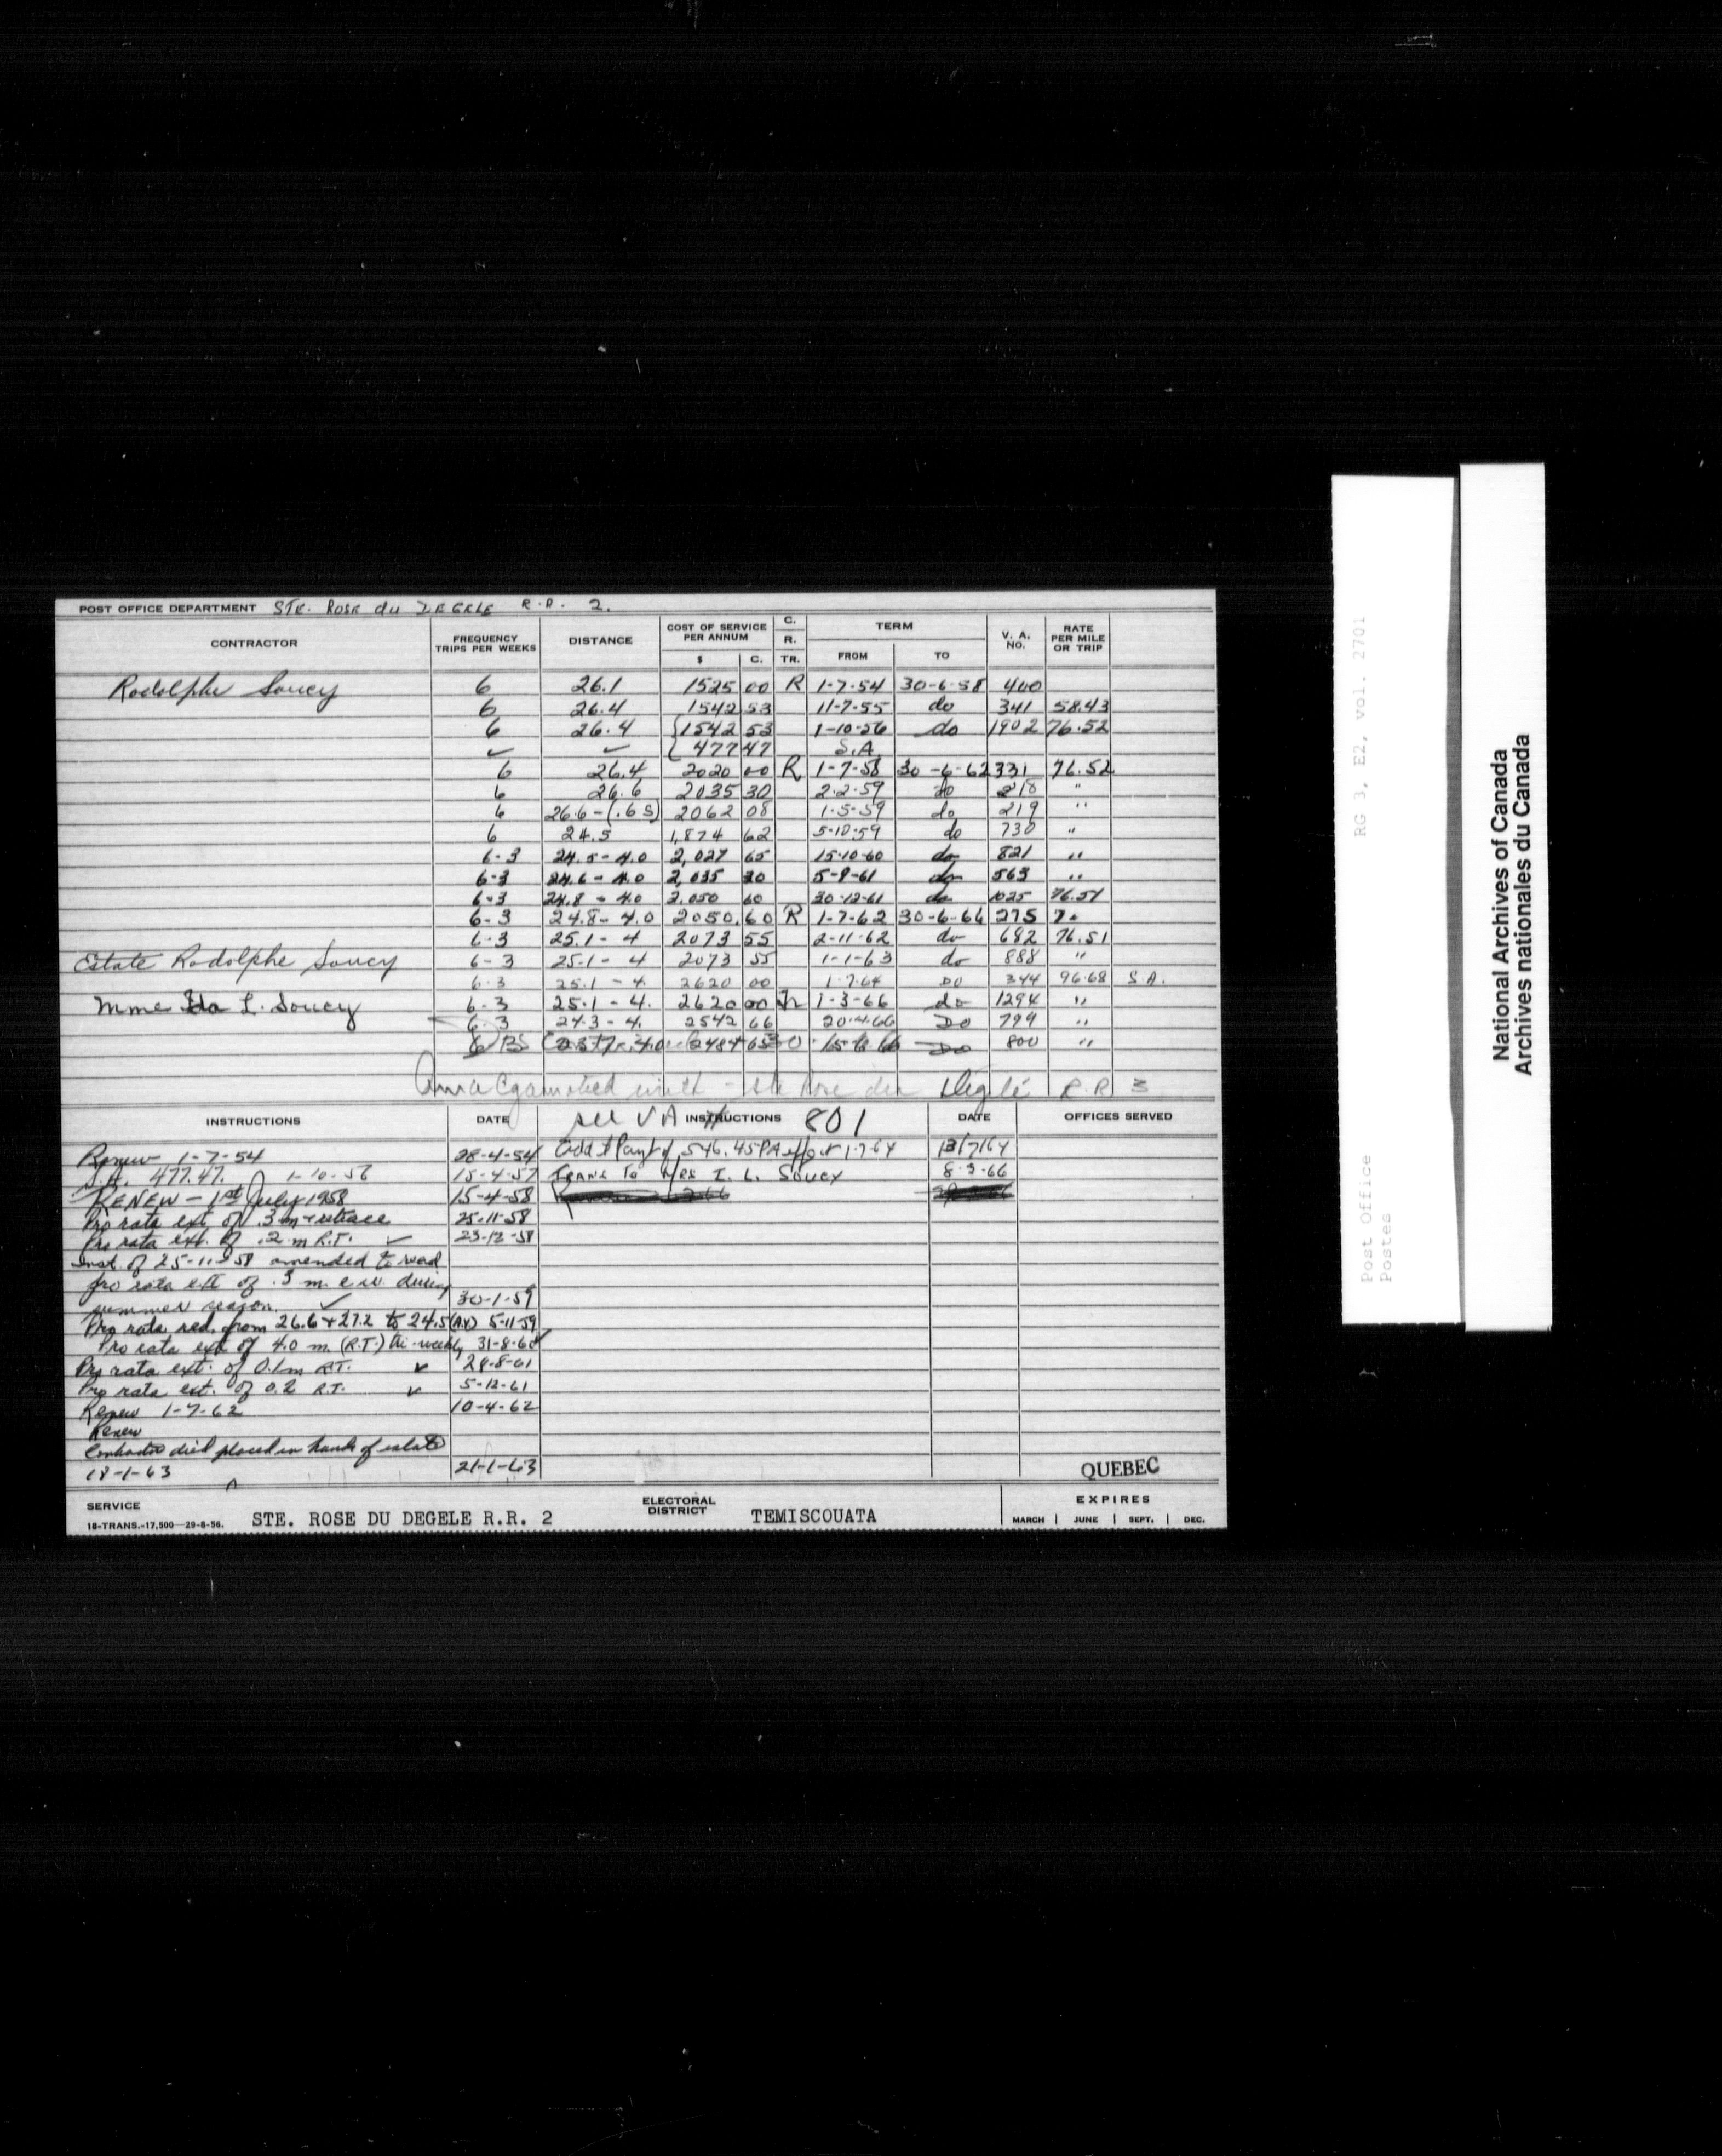 POST OFFICE DEPARTMENT STE. ROSE du DEGELE R.R. 2.
CONTRACTOR FREQUENCY TRIPS PER WEEKS DISTANCE COST OF SERVICE PER ANNUM $ C. C. R. TR. TERM FROM TO V. A. NO. RATE PER MILE OR TRIP
Rodolphe Soucy 6 26.1 1525 00 R 1-7-54 30-6-58 400
6 26.4 1542 53 11-7-55 do 341 58.43
6 26.4 1542 53 1-10-56 do 1902 76.52
✓ ✓ 477 47 S.A.
6 26.4 2020 00 R 1-7-58 30-6-62 331 76.52
6 26.6 2035 30 2-2-59 do 218 "
6 26.6-(.6 S) 2062 08 1-5-59 do 219 "
6 24.5 1,874 62 5-10-59 do 730 "
6-3 24.5-4.0 2,027 65 15-10-60 do 821 "
6-3 24.6-4.0 2,035 30 5-9-61 do 563 "
6-3 24.8-4.0 2,050 60 30-12-61 do 1025 76.51
6-3 24.8-4.0 2050.60 R 1-7-62 30-6-66 275
6-3 25.1-4 2073 55 2-11-62 do 682 76.51
Estate Rodolphe Soucy 6-3 25.1-4 2073 55 1-1-63 do 888 "
6-3 25.1-4 2620 00 1-7-64 DO 344 96.68 S.A.
Mme Ida L. Soucy 6-3 25.1-4. 2620 00 Tr 1-3-66 do 1294 "
6-3 24.3-4. 2542 66 20-4-66 DO 799 "
2484 DO 800 "
Amalgamated with - Ste Rose du Degelé R.R 3
see VA # 801
INSTRUCTIONS DATE INSTRUCTIONS DATE OFFICES SERVED
Renew 1-7-54 28-4-54 Add'l Paymt of 546.45 PA eff 1-7-64 13/7/64
S.A. 477.47. 1-10-56 15-4-57 Trans To Mrs I. L. Soucy 8-3-66
RENEW - 1st July 1958 15-4-58
Pro rata ext of .3 m + retrace 25-11-58
Pro rata ext. of .2 m R.T. ✓ 23-12-58
Inst. of 25-11-58 amended to read
pro rata ext of .3 m. e.w. during
summer season. ✓ 30-1-59
Pro rata red. from 26.6 + 27.2 to 24.5 (AX) 5-11-59
Pro rata ext of 4.0 m. (R.T.) tri-weekly 31-8-60
Pro rata ext. of 0.1m R.T. ✓ 28-8-61
Pro rata ext. of 0.2 R.T. ✓ 5-12-61
Renew 1-7-62 10-4-62
Renew
Contractor died placed in hands of estate
18-1-63 21-1-63
QUEBEC
SERVICE STE. ROSE DU DEGELE R.R. 2 ELECTORAL DISTRICT TEMISCOUATA EXPIRES
18-TRANS.-17,500—29-8-56. MARCH | JUNE | SEPT. | DEC.
RG 3, E2, vol. 2701
Post Office
Postes
National Archives of Canada
Archives nationales du Canada